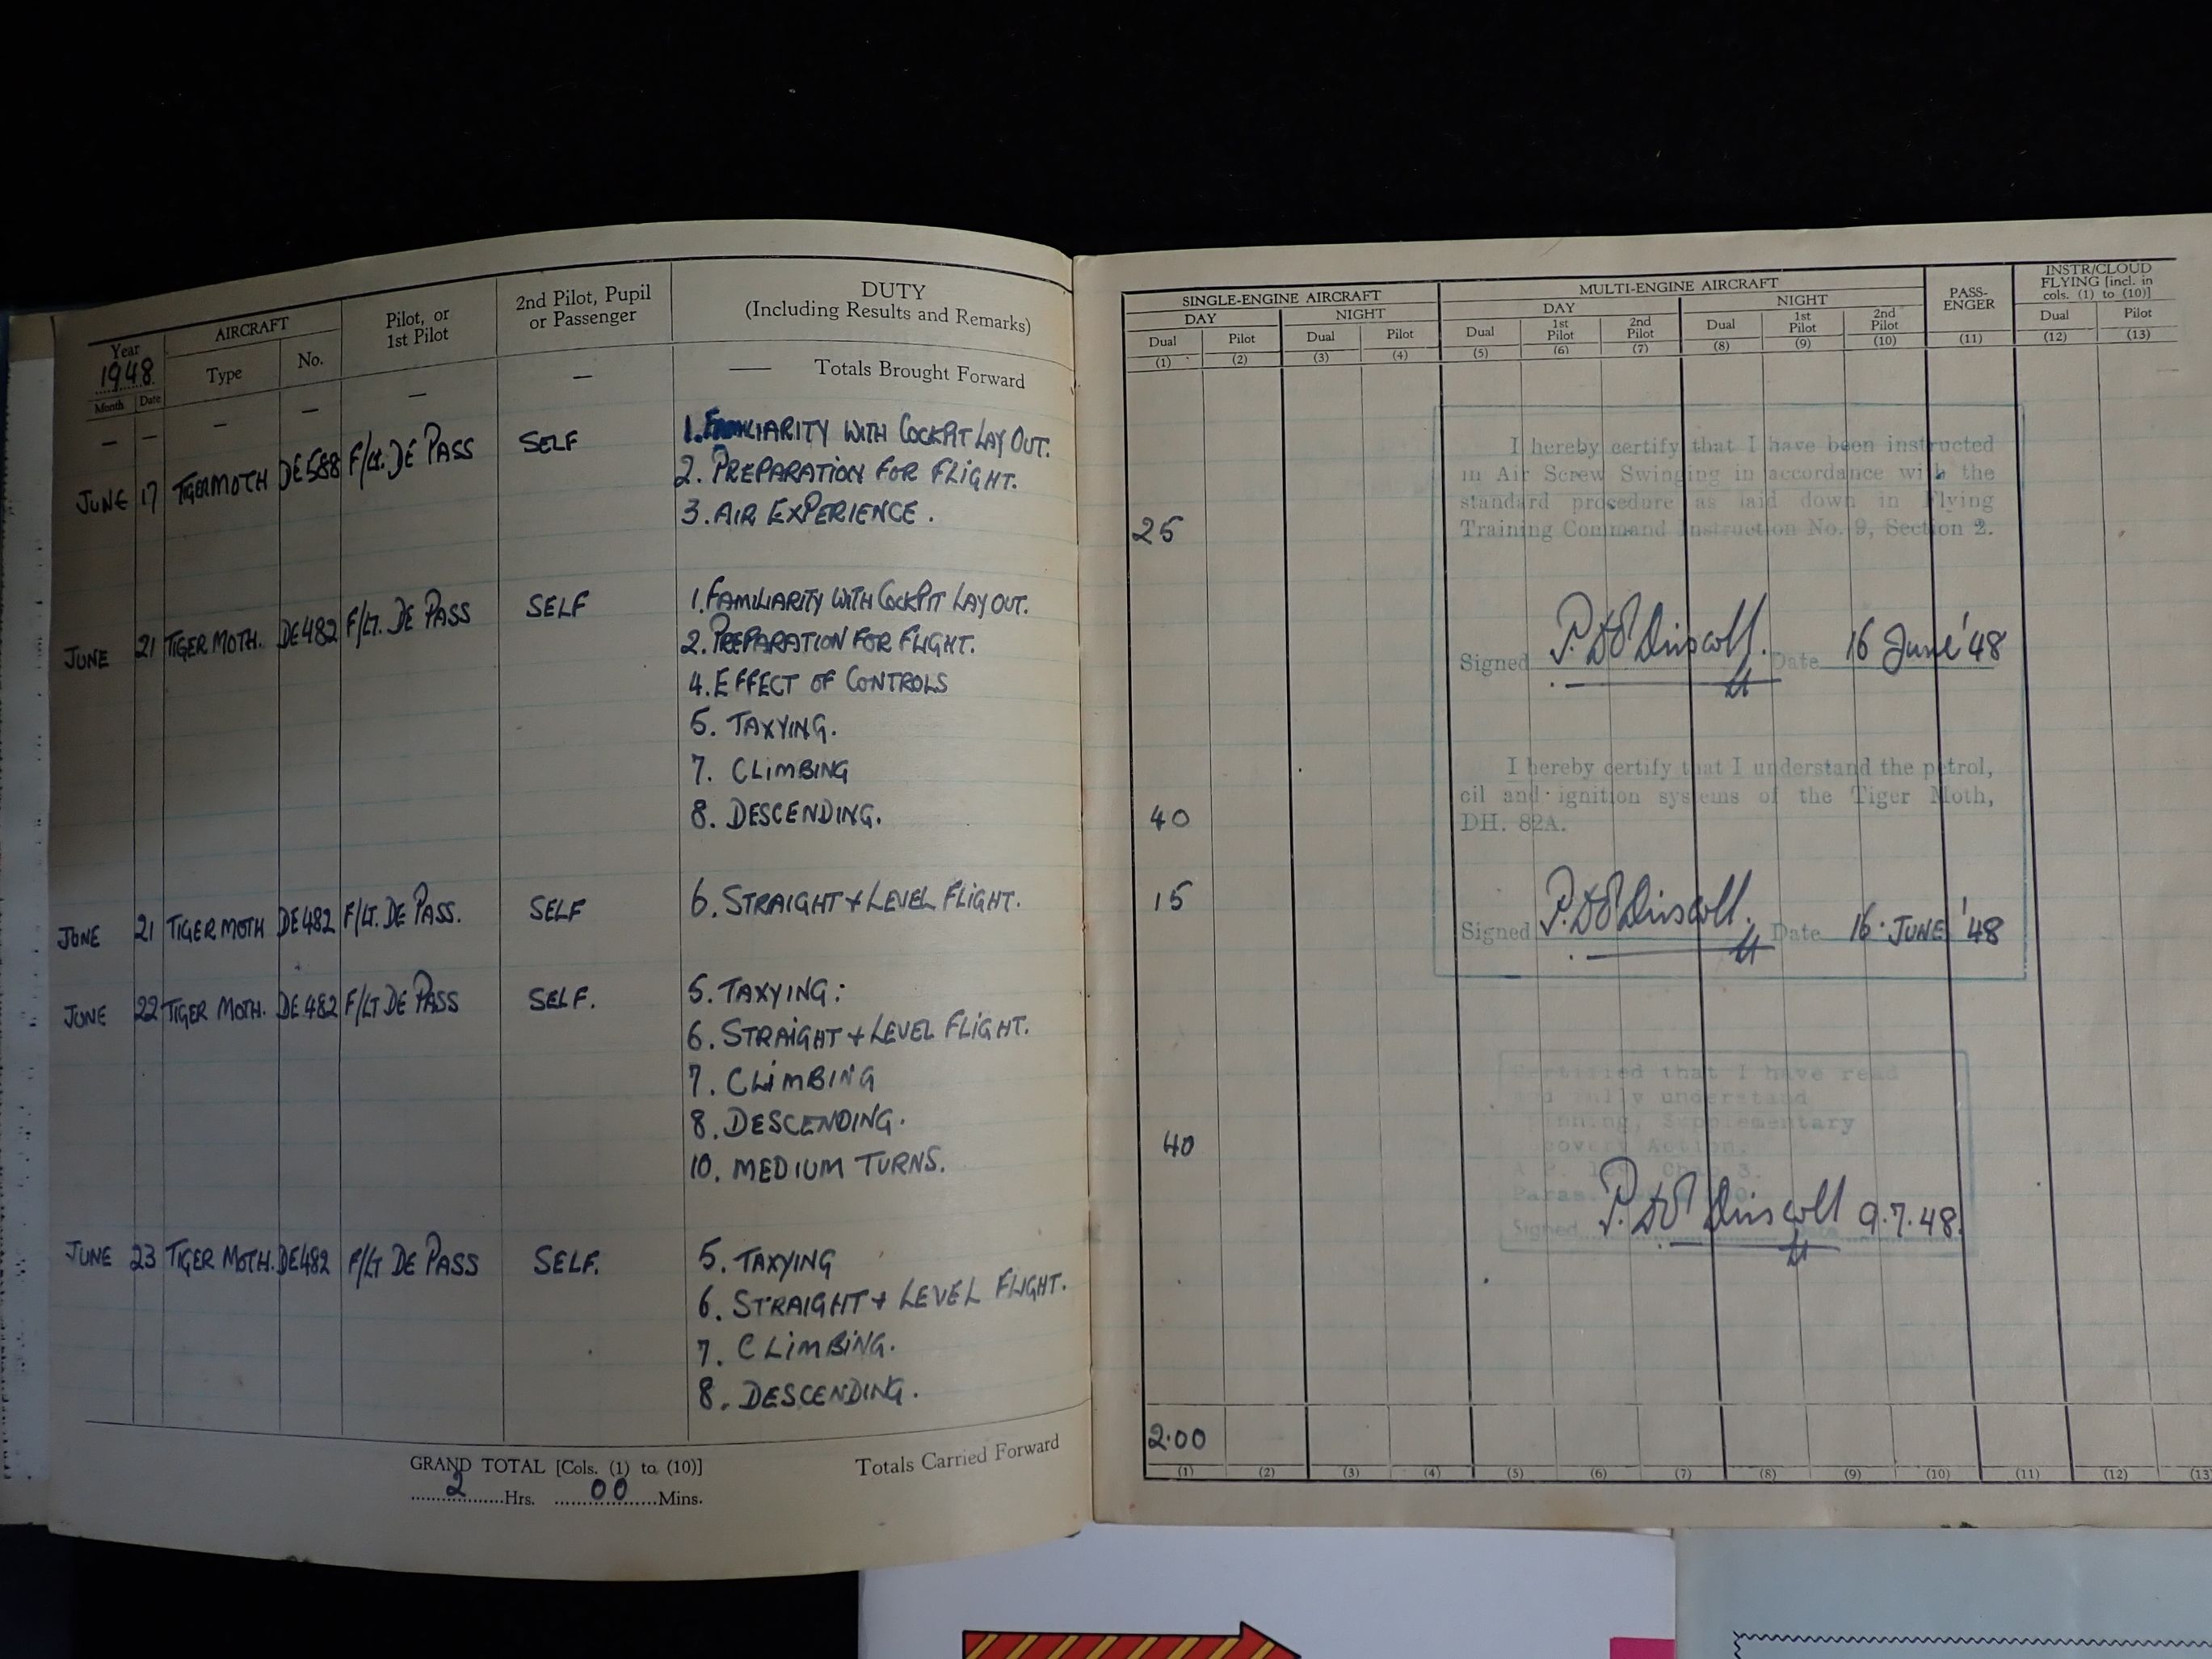 Year
1948
AIRCRAFT
Pilot, or
1st Pilot
2nd Pilot, Pupil
or Passenger
DUTY
(Including Results and Remarks)
Month Date Type No.
— — — — — — — Totals Brought Forward
JUNE 17 TIGER MOTH DE588 F/LT. DE PASS SELF 1. FAMILIARITY WITH COCKPIT LAY OUT.
2. PREPARATION FOR FLIGHT.
3. AIR EXPERIENCE.
JUNE 21 TIGER MOTH. DE482 F/LT. DE PASS SELF 1. FAMILIARITY WITH COCKPIT LAY OUT.
2. PREPARATION FOR FLIGHT.
4. EFFECT OF CONTROLS
5. TAXYING.
7. CLIMBING
8. DESCENDING.
JUNE 21 TIGER MOTH DE482 F/LT. DE PASS. SELF 6. STRAIGHT + LEVEL FLIGHT.
JUNE 22 TIGER MOTH. DE482 F/LT DE PASS SELF. 5. TAXYING:
6. STRAIGHT + LEVEL FLIGHT.
7. CLIMBING
8. DESCENDING.
10. MEDIUM TURNS.
JUNE 23 TIGER MOTH. DE482 F/LT DE PASS SELF. 5. TAXYING
6. STRAIGHT + LEVEL FLIGHT.
7. CLIMBING.
8. DESCENDING.
GRAND TOTAL [Cols. (1) to (10)]
2 Hrs. 00 Mins.
Totals Carried Forward
SINGLE-ENGINE AIRCRAFT MULTI-ENGINE AIRCRAFT PASS-
ENGER INSTR/CLOUD
FLYING [incl. in
cols. (1) to (10)]
DAY NIGHT DAY NIGHT
Dual Pilot Dual Pilot Dual 1st
Pilot 2nd
Pilot Dual 1st
Pilot 2nd
Pilot Dual Pilot
(1) (2) (3) (4) (5) (6) (7) (8) (9) (10) (11) (12) (13)
25
40
15
40
2.00
I hereby certify that I have been instructed
in Air Screw Swinging in accordance with the
standard procedure as laid down in Flying
Training Command Instruction No. 9, Section 2.
Signed P. D. O'Driscoll. Date 16 June '48
I hereby certify that I understand the petrol,
oil and ignition systems of the Tiger Moth,
DH. 82A.
Signed P. D. O'Driscoll. Date 16. JUNE '48
Certified that I have read
and fully understand
Supplementary
Action.
Chap 3.
Paras.
Signed P. D. O'Driscoll 9.7.48.
(1) (2) (3) (4) (5) (6) (7) (8) (9) (10) (11) (12) (13